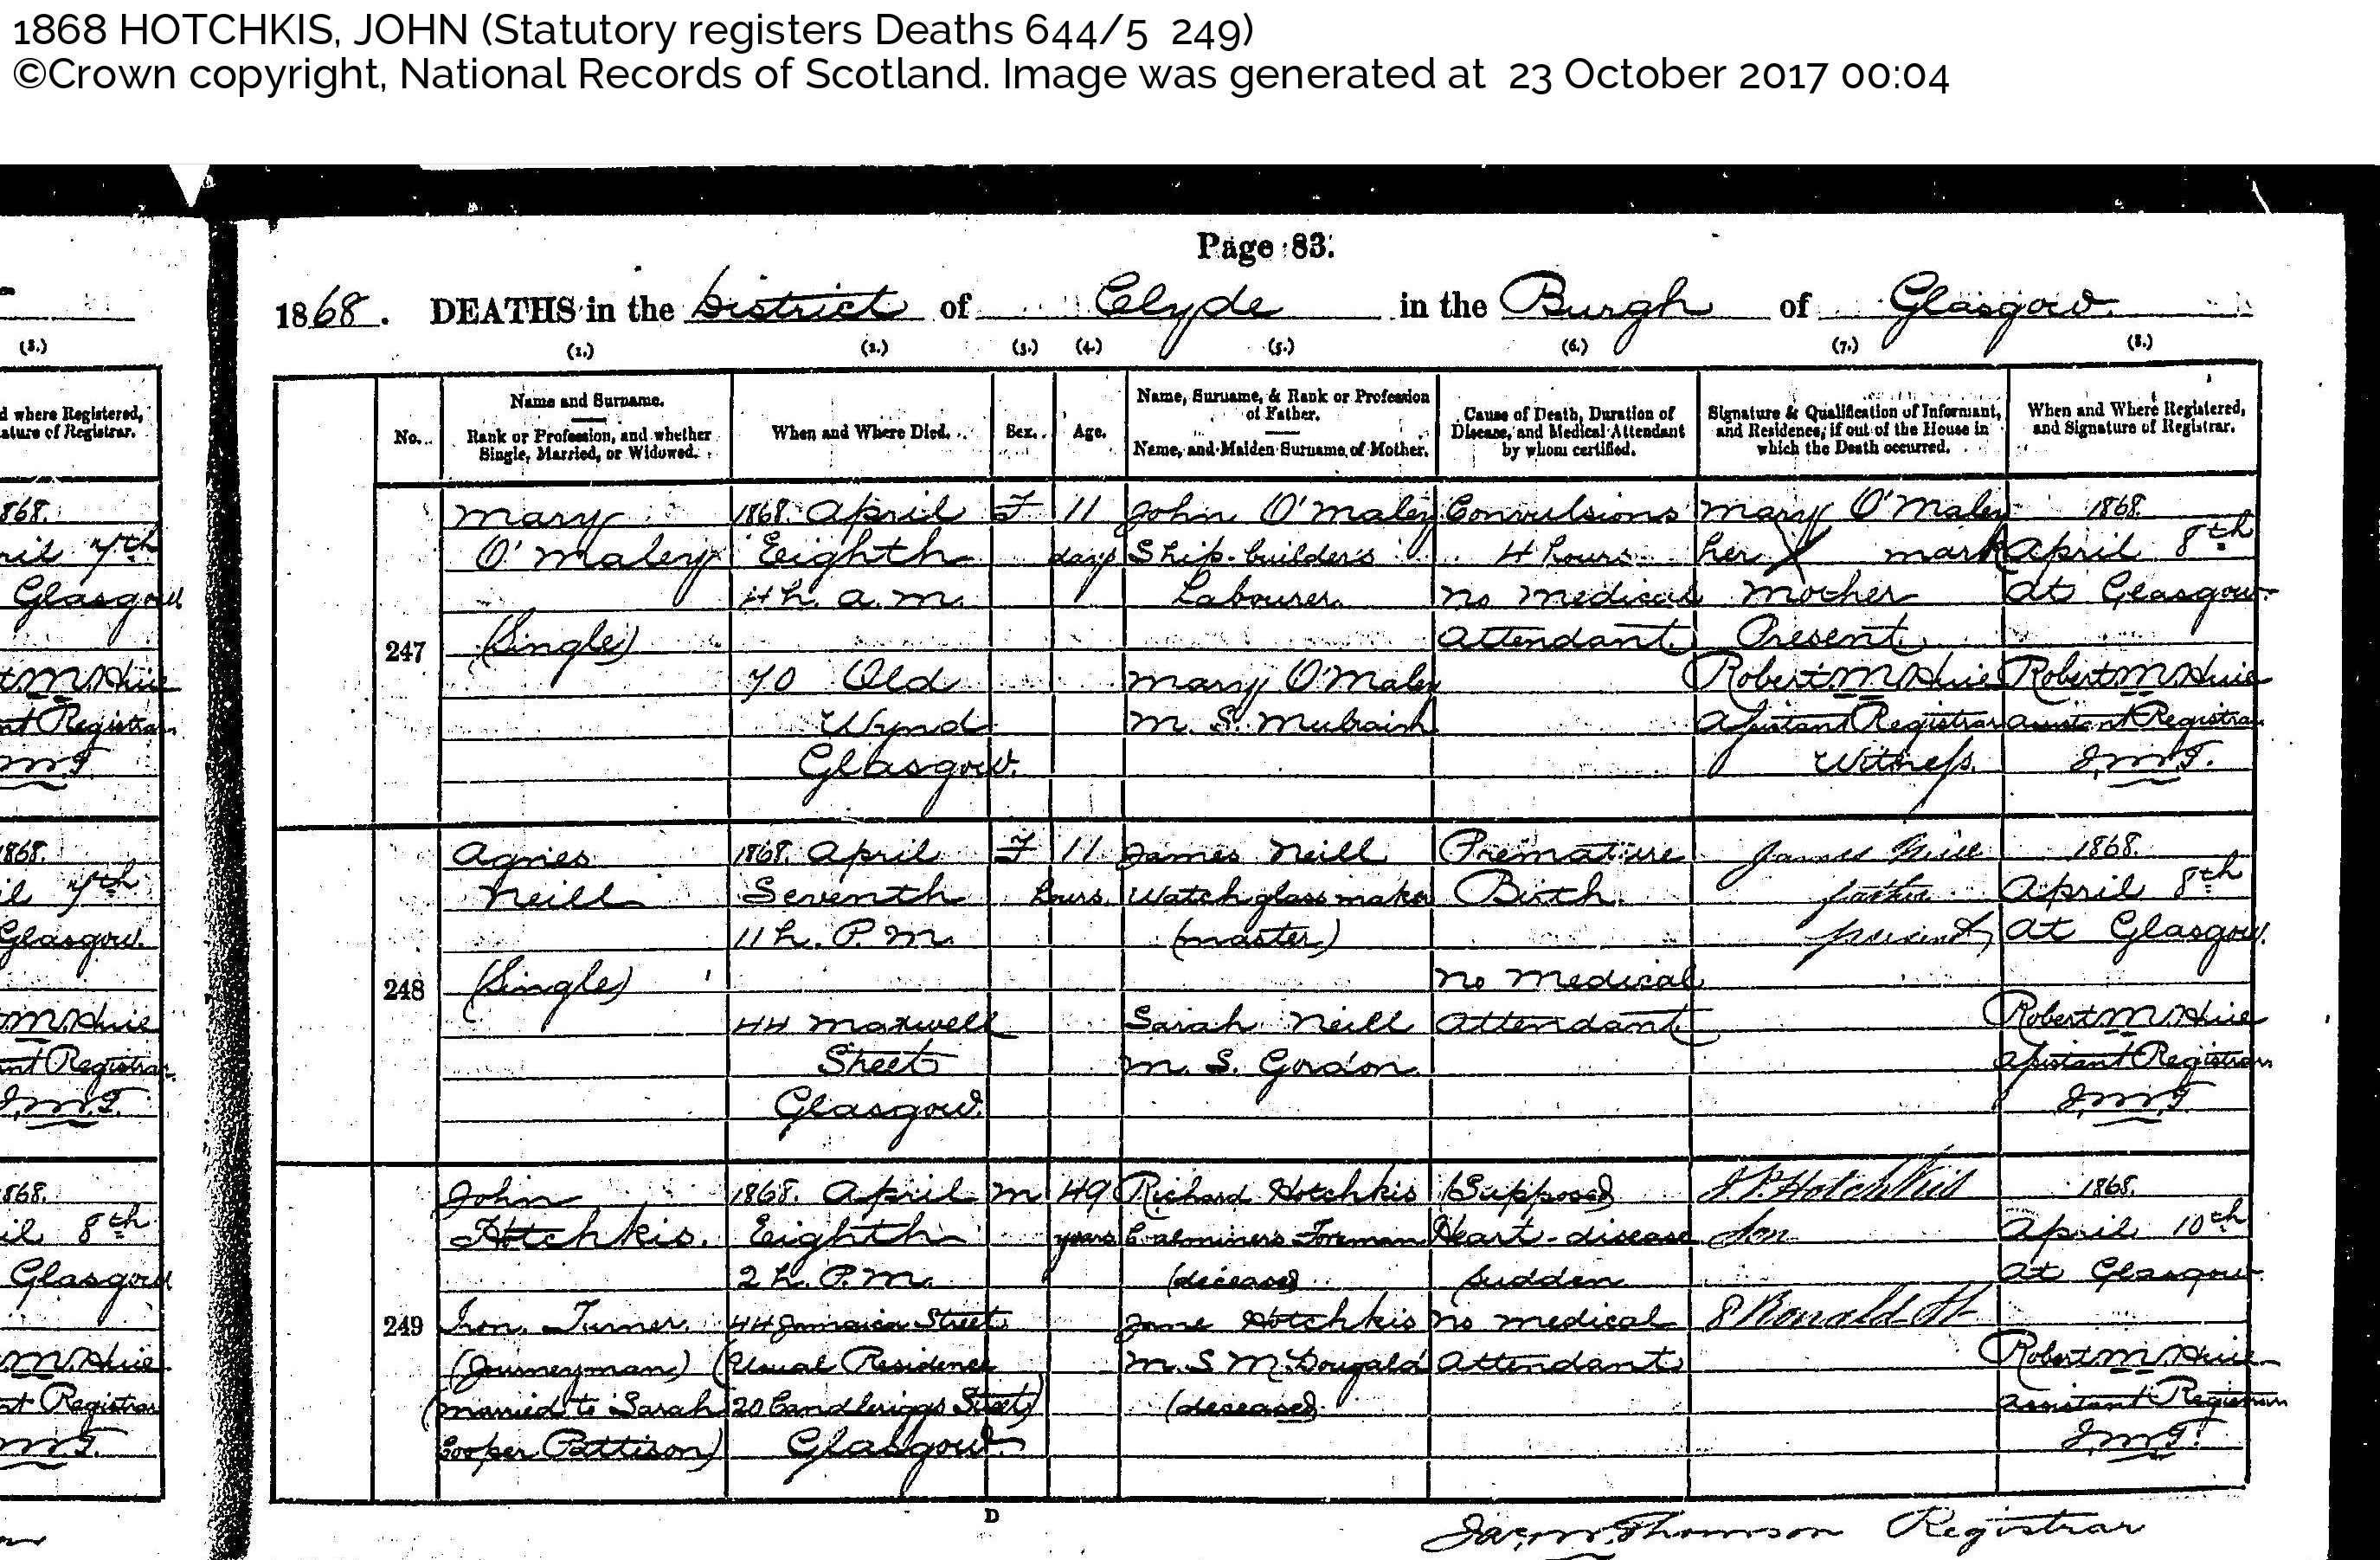 1868 HOTCHKIS, JOHN (Statutory registers Deaths 644/5 249)
©Crown copyright, National Records of Scotland. Image was generated at 23 October 2017 00:04
Page 83.
1868. DEATHS in the District of Clyde in the Burgh of Glasgow.
(8.)
(1.) (2.) (3.) (4.) (5.) (6.) (7.) (8.)
where Registered,
ature of Registrar.
No.
Name and Surname.
Rank or Profession, and whether
Single, Married, or Widowed.
When and Where Died.
Sex.
Age.
Name, Surname, & Rank or Profession
of Father.
Name, and Maiden Surname of Mother.
Cause of Death, Duration of
Disease, and Medical Attendant
by whom certified.
Signature & Qualification of Informant,
and Residence, if out of the House in
which the Death occurred.
When and Where Registered,
and Signature of Registrar.
247
Mary
O'Maley
(Single)
1868. April
Eighth
4 h. a.m.
70 Old
Wynd
Glasgow.
F
11
days
John O'Maley
Ship-builder's
Labourer.
Mary O'Maley
M. S.
Convulsions
4 hours
No medical
Attendant.
Mary O'Maley
her X mark
Mother
Present
Robert McHuie
Assistant Registrar
Witness.
1868.
April 8th
at Glasgow.
Robert McHuie
Assistant Registrar
J.McT.
248
Agnes
Neill
(Single)
1868. April
Seventh
11 h. P.M.
44 Maxwell
Street
Glasgow.
F
11
hours.
James Neill
Watch glass maker
(master)
Sarah Neill
M. S. Gordon.
Premature
Birth.
No medical
Attendant
James Neill
father
present
1868.
April 8th
at Glasgow.
Robert McHuie
Assistant Registrar
J.McT.
249
John
Hotchkis.
Iron Turner.
(Journeyman)
(Married to Sarah
Cooper Pattison)
1868. April
Eighth
2 h. P.M.
44 Jamaica Street
(Usual Residence
20 Candleriggs Street)
Glasgow.
M
49
years
Richard Hotchkis
Coalminers Foreman
(deceased)
Jane Hotchkis
M. S. McDougald
(deceased)
(Supposed)
Heart-disease
sudden
No medical
Attendant
J P Hotchkis
Son
1868.
April 10th
at Glasgow.
Robert McHuie
Assistant Registrar
J.McT.
D
Thomson Registrar